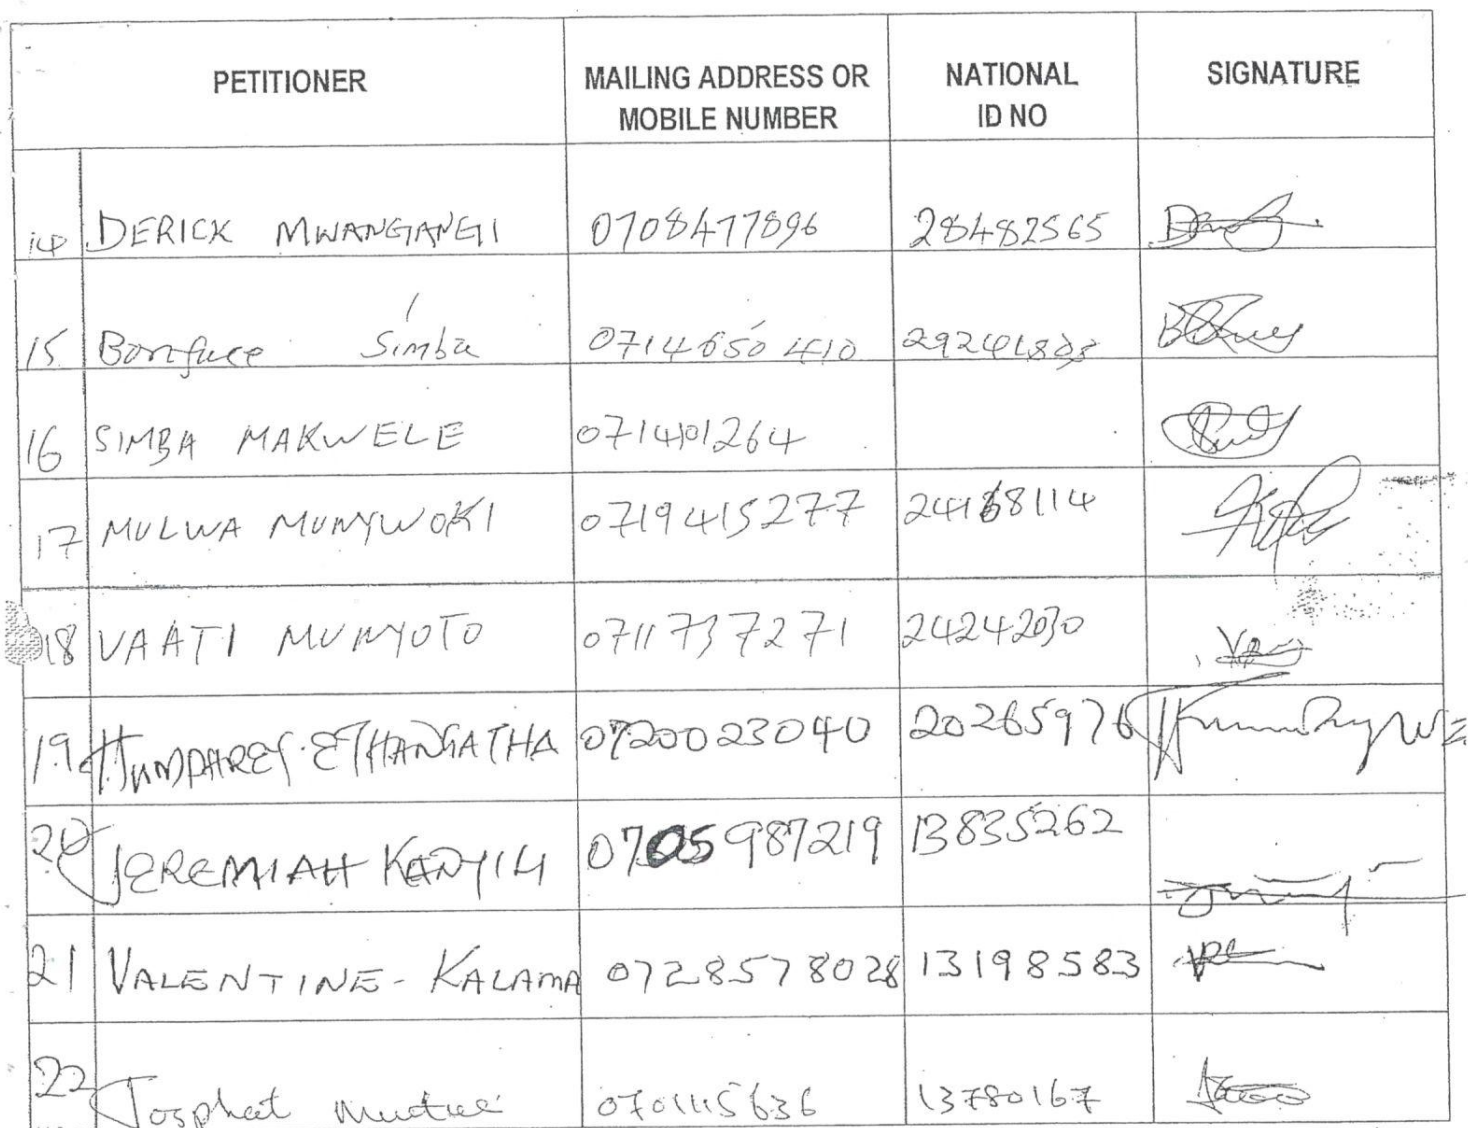 PETITIONER MAILING ADDRESS OR MOBILE NUMBER NATIONAL ID NO SIGNATURE
14 DERICK MWANGANGI 0708477896 28482565
15. Boniface Simba 0714650410
16 SIMBA MAKWELE 071401264
17 MULWA MUNYWOKI 0719415277 24168114
18 VAATI MUNYOTO 0711737271 24242030
19 HUMPHREY. 0720023040 20265976
20 JEREMIAH KANYILI 0705987219 13835262
21 VALENTINE - KALAMA 0728578028 13198583
22 Josphat Mutua 0701115636 13780167